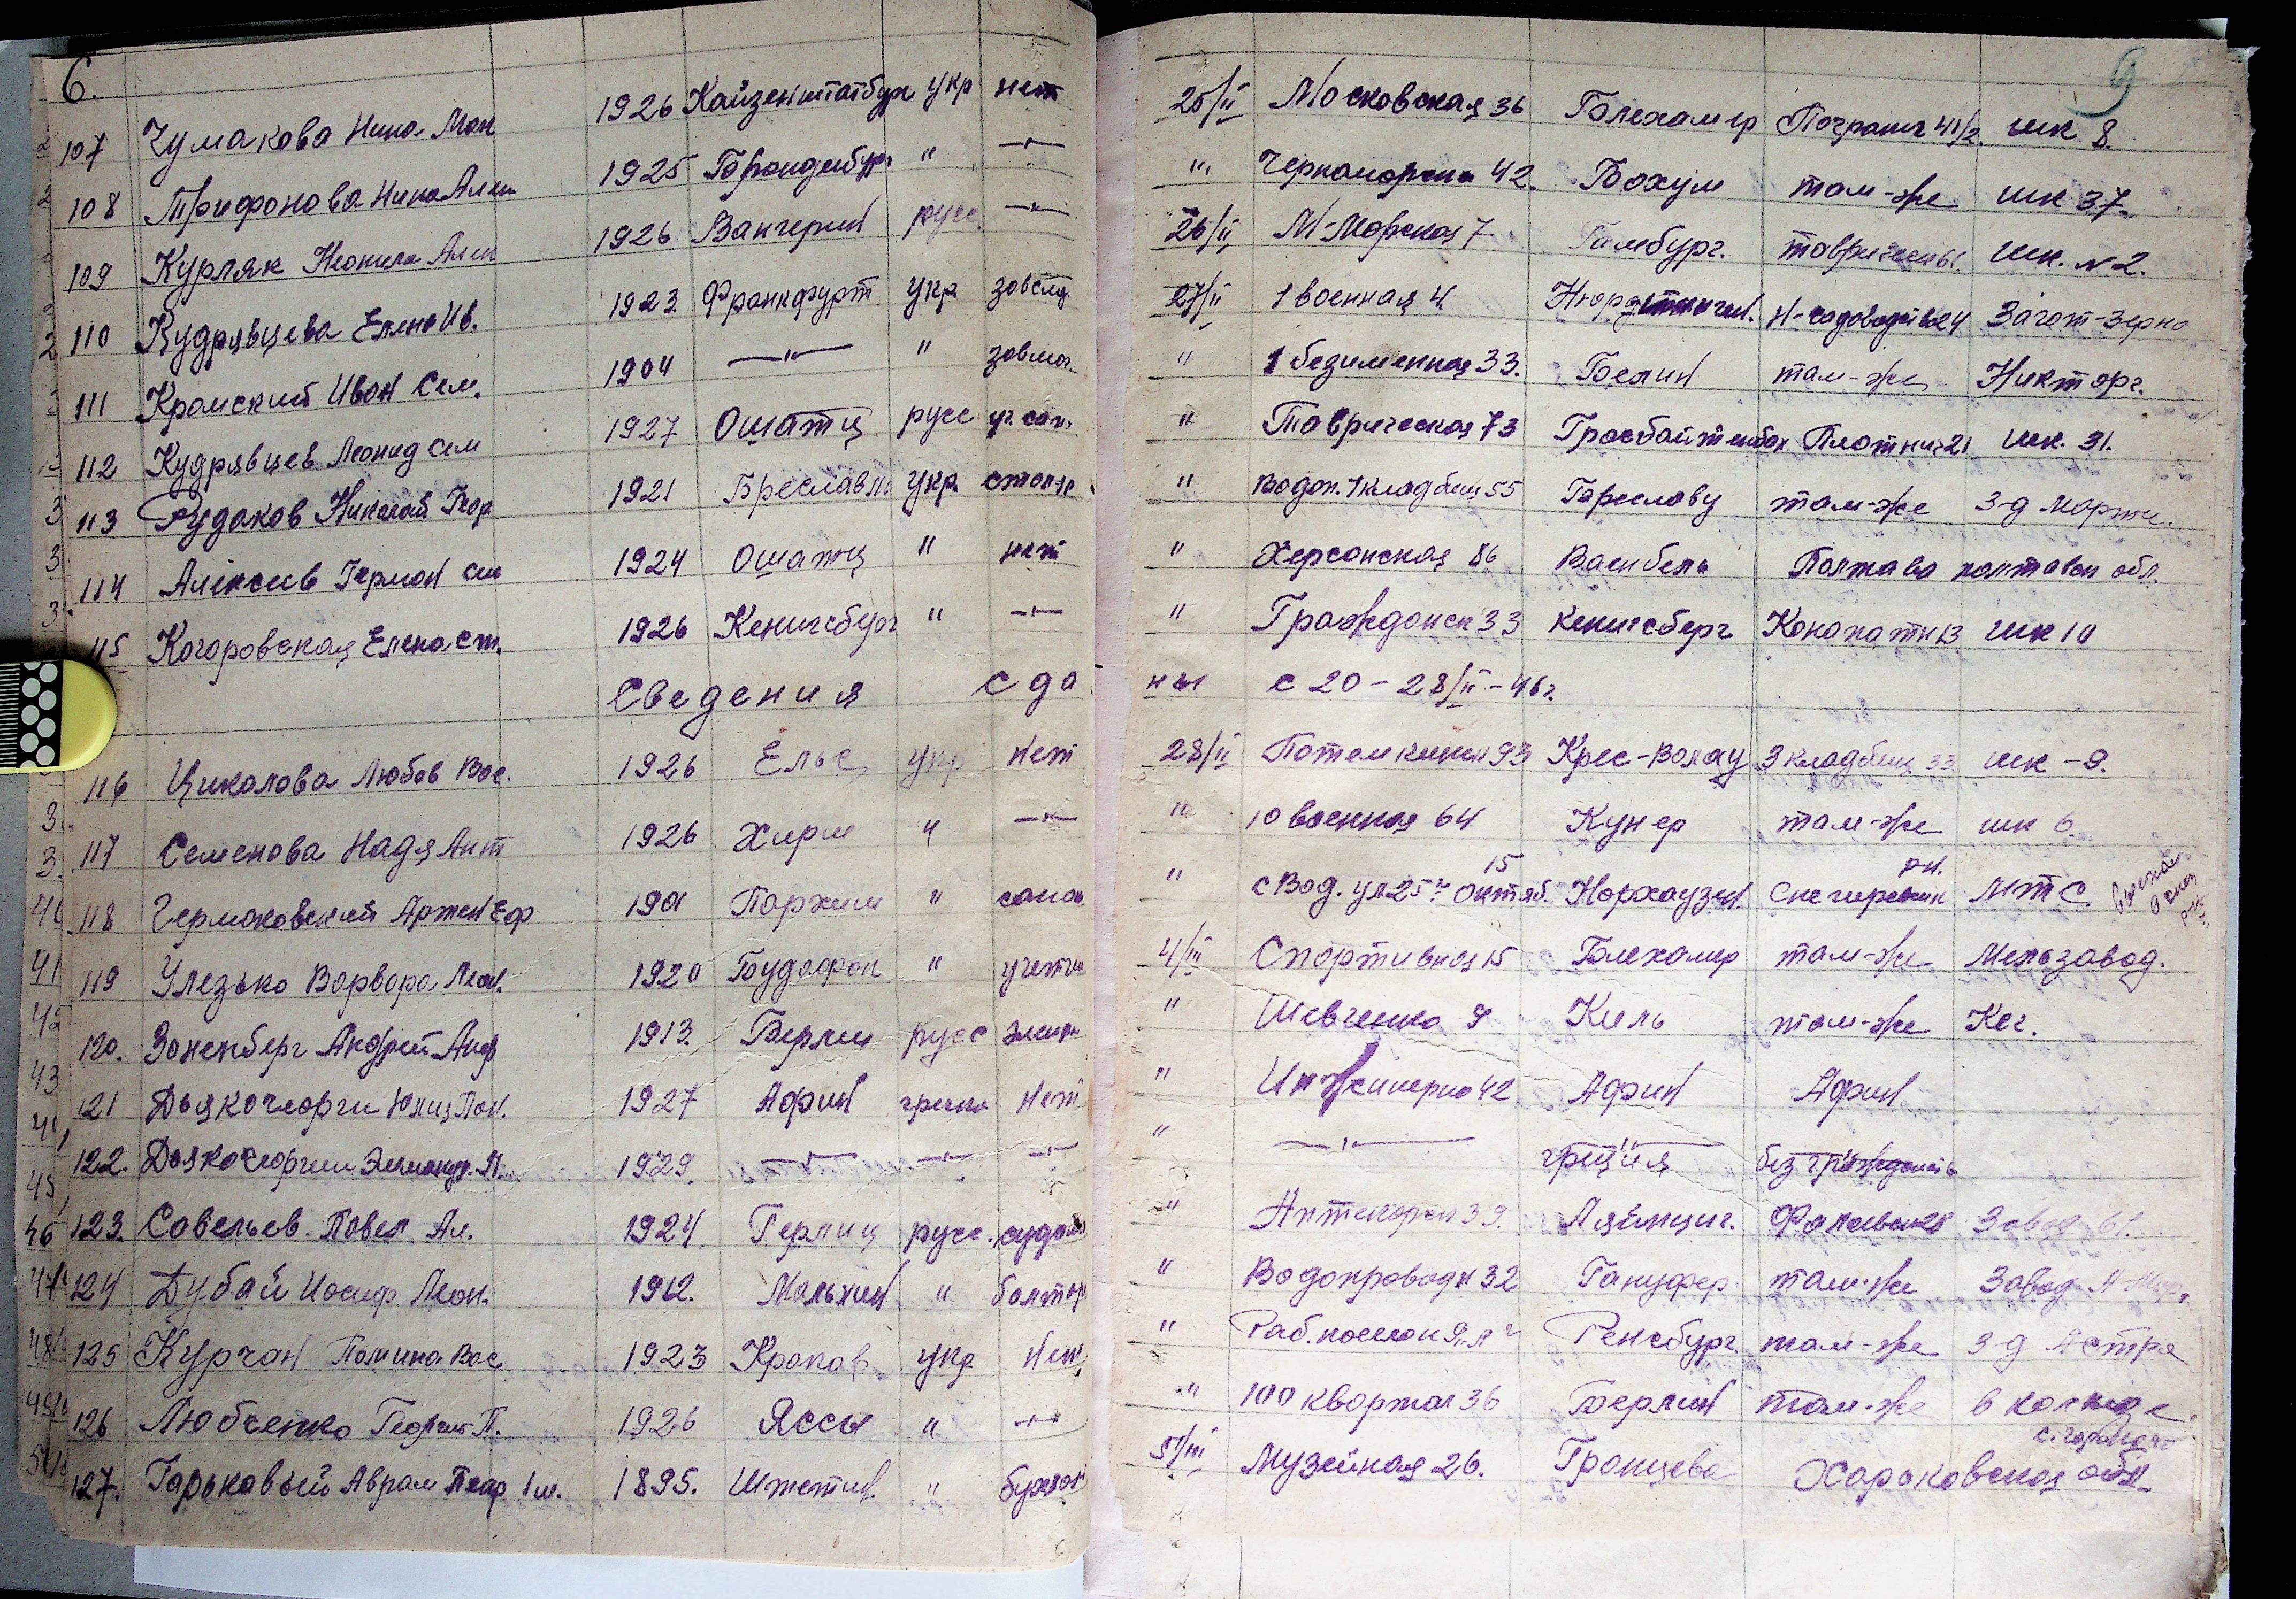 6. 9
107 Чумакова Нина Мак 1926 Кайзенштатбург укр нет 25/II Московская 36 Блехамер Погранич 41/2. шк. 8.
108 Трифонова Нина Алек 1925 Бранденбург " —"— " Черноморск 42. Бохум там-же шк 37.
109 Курляк Неонила Алек 1926 Вангерин русс —"— 26/II М-Морская 7 Гамбург. таврическ шк. №2.
110 Кудрявцева Елена Ив. 1923 Франкфурт укр завслд 27/II 1 военная 4 Н-садоводство 24 Загот-Зерно
111 Крамский Иван Сем. 1904 —"— " завмаг. " 1 безименная 33. Белин там-же Никторг.
112 Кудрявцев Леонид Сем 1927 Ошатц русс уч. сап. " Таврическая 73 Гросбайтенбах Плотнич 21 шк. 31.
113 Рудаков Николай Геор 1921 Бреславль укр столяр " Водоп. 1 кладбищ 55 Бреславу там-же З-д Марти.
114 Алексеев Герман Сем 1924 Ошатц " нет " Херсонская 86 Ваенбель Полтава полтавск обл.
115 Когоровская Елена Ст. 1926 Кенигсберг " —"— " Гражданск 33 Кенигсберг Конапатн 13 шк 10
Сведения сда ны с 20 – 28/II – 46 г.
116 Цикалова Любов Вас. 1926 Ельс укр нет 28/II Потемкинск 93 Крес-Волау 3 кладбищ 33 шк – 9.
117 Семенова Надя Ант 1926 Хирм " —"— " 10 военная 64 Кунер там-же шк 6.
118 Чермаковский Артем Еф Пархим " сапож " с Вод. ул 25 л Октяб. 15 Нордхаузен. Снегиревский рн. МТС.
119 Улезько Варвара Леон. 1920 Будафок " учетчи 4/III Спортивная 15 Блехамер там-же Мельзавод.
120. Зоненберг Андрей Анд 1913. Берлин русс электр " Шевченко 9 Киль там-же Кег.
121 Дьякочеорги Юлия Пан. 1927 Афин гречка нет " Инженерно 42 Афин Афин
122. Дьякочеоргии Александ. П. 1929. —"— —"— —"— " —"— греция без гражданств
123. Савельев Павел Ал. 1924 Герлиц русс. судом " Аптекарск 39. Ляйпциг. Фалеевск 28 Завод 61.
124 Дубай Иосиф Леон. 1912. Мальхин " болторе " Водопроводн 32 Гануфер там-же Завод Н Мар.
125 Курчан Полина Вас 1923 Краков укр Нет " Раб. поселок 9 "Л" Ренсбург. там-же З д Астра
126 Любченко Георгий П. 1926 Яссы " —"— " 100 квартал 36 Берлин там-же в колнозе.
127. Гарькавый Аврам Пеар 1895. Штетин. " бухгал 5/III Музейная 26. Гранцева Харьковская обл.